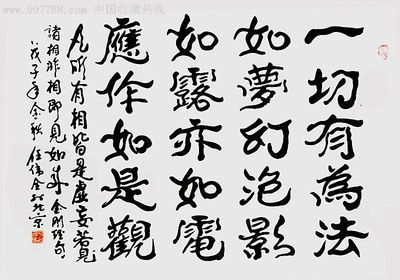 www.997788.com 中国收藏热线
一切有為法
如夢幻泡影
如露亦如電
應作如是觀
凡所有相皆是虛妄若見
諸相非相即見如來 金剛經句
戊子年金秋 任 北京